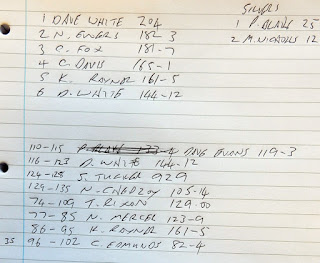 1 DAVE WHITE 204
2 N. EVERS 182-3
3 C. FOX 181-7
4 C. DAVIS 165-1
5 K. RAYNER 161-5
6 D. WHITE 144-12
SILVERS
1 P. 25
2 M. NICHOLLS 12
110-115 DAVE EVANS 119-3
116-123 D. WHITE 144-12
124-128 S. TUCKER 929
129-135 N. 105-14
74-109 T. RIXON 129.00
77-85 N. MERCER 123-9
86-95 K. RAYNER 161-5
35 96-102 C. EDMUNDS 82-4